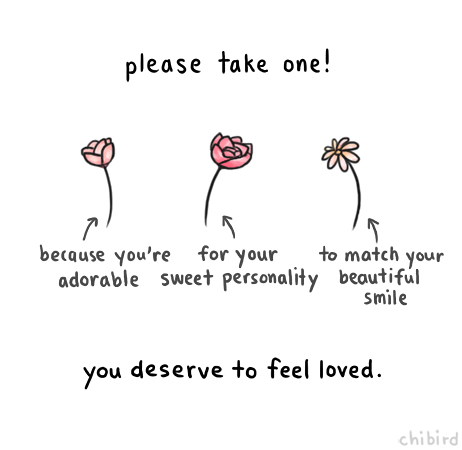 please take one!
because you're
adorable
for your
sweet personality
to match your
beautiful
smile
you deserve to feel loved.
chibird